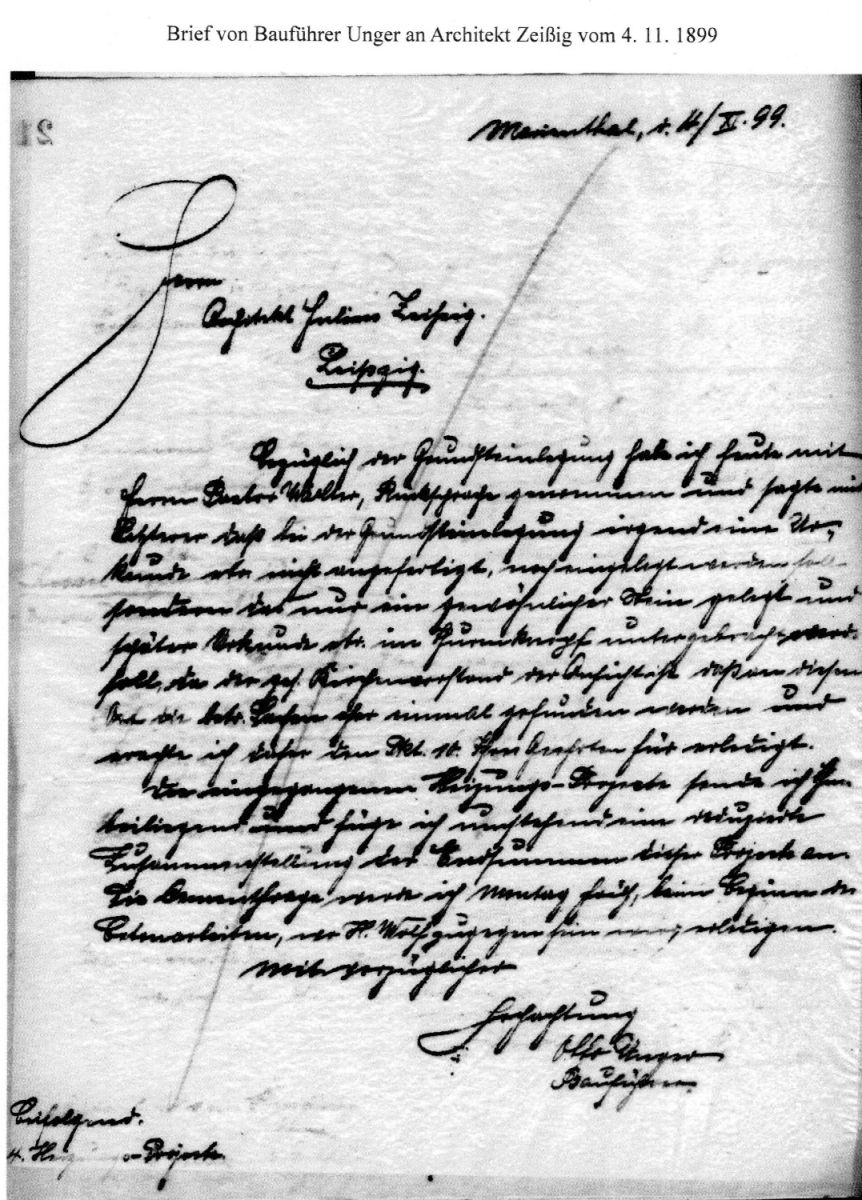 Brief von Bauführer Unger an Architekt Zeißig vom 4. 11. 1899
21
Marienthal, d. 4/XI. 99.
Herrn
Architekt Julius Zeißig.
Leipzig.
Bezüglich der Grundsteinlegung habe ich heute mit
Herrn Pastor Walter, Rücksprache genommen und sagte mir
Letzterer daß bei der Grundsteinlegung irgend eine Ur-
kunde etc. nicht angefertigt, noch eingelegt werden soll
sondern das nur ein gewöhnlicher Stein gelegt und
später Urkunde etc. im Turmknopf untergebracht werd.
soll, da der gesch. Kirchenvorstand der Ansicht ist daß an diesem
Ort die betr. Sachen eher einmal gefunden werden und
erachte ich daher den Pkt. 10. Ihres Geehrten für erledigt.
Die eingegangenen Heizungs-Projecte sende ich Ihn.
beiliegend und füge ich umstehend eine reduzierte
Zusammenstellung der Endsummen dieser Projecte an.
Die Cementfrage werde ich Montag früh, beim Beginn der
Betonarbeiten, wo H. Wolf zugegen sein erledigen.
Mit vorzüglicher
Hochachtung
Otto Unger
Bauführer.
Beifolgend.
4. Heizungs-Projecte.